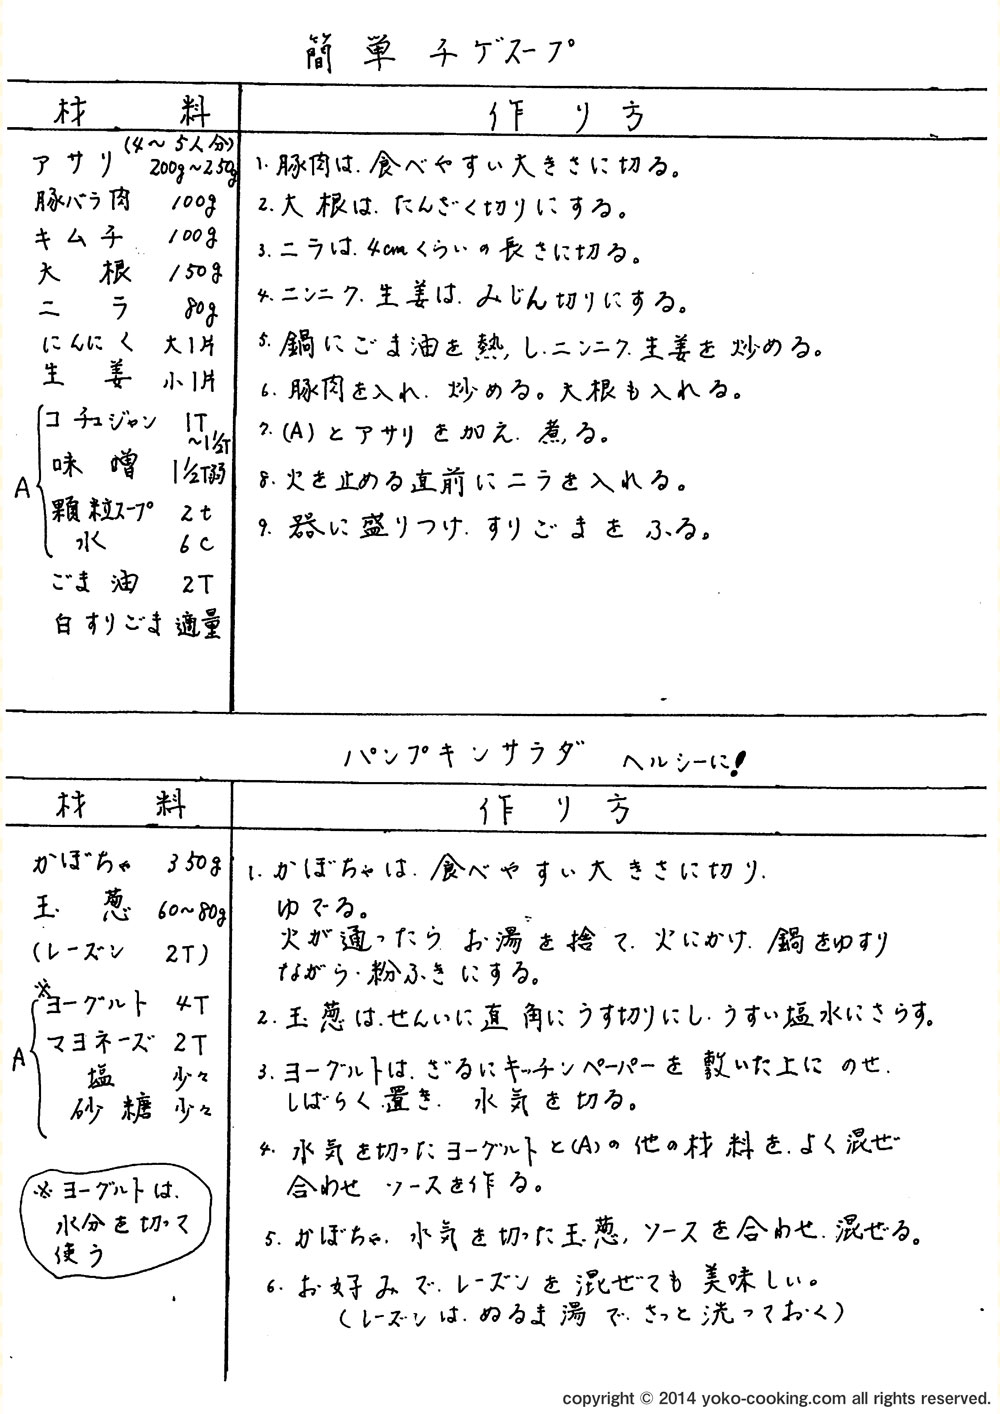 簡単チゲスープ
材料
作り方
(4〜5人分)
アサリ 200g〜250g
豚バラ肉 100g
キムチ 100g
大根 150g
ニラ 80g
にんにく 大1片
生姜 小1片
A
コチュジャン 1T
〜1½T
味噌 1½T弱
顆粒スープ 2t
水 6C
ごま油 2T
白すりごま 適量
1. 豚肉は、食べやすい大きさに切る。
2. 大根は、たんざく切りにする。
3. ニラは、4cmくらいの長さに切る。
4. ニンニク、生姜は、みじん切りにする。
5. 鍋にごま油を熱し、ニンニク、生姜を炒める。
6. 豚肉を入れ、炒める。大根も入れる。
7. (A)とアサリを加え、煮る。
8. 火を止める直前にニラを入れる。
9. 器に盛りつけ、すりごまをふる。
パンプキンサラダ ヘルシーに!
材料
作り方
かぼちゃ 350g
玉葱 60〜80g
(レーズン 2T)
A
※ヨーグルト 4T
マヨネーズ 2T
塩 少々
砂糖 少々
※ヨーグルトは、
水分を切って
使う
1. かぼちゃは、食べやすい大きさに切り、
ゆでる。
火が通ったら、お湯を捨て、火にかけ、鍋をゆすり
ながら、粉ふきにする。
2. 玉葱は、せんいに直角にうす切りにし、うすい塩水にさらす。
3. ヨーグルトは、ざるにキッチンペーパーを敷いた上にのせ、
しばらく置き、水気を切る。
4. 水気を切ったヨーグルトと(A)の他の材料を、よく混ぜ
合わせ ソースを作る。
5. かぼちゃ、水気を切った玉葱、ソースを合わせ、混ぜる。
6. お好みで、レーズンを混ぜても美味しい。
(レーズンは、ぬるま湯で、さっと洗っておく)
copyright © 2014 yoko-cooking.com all rights reserved.